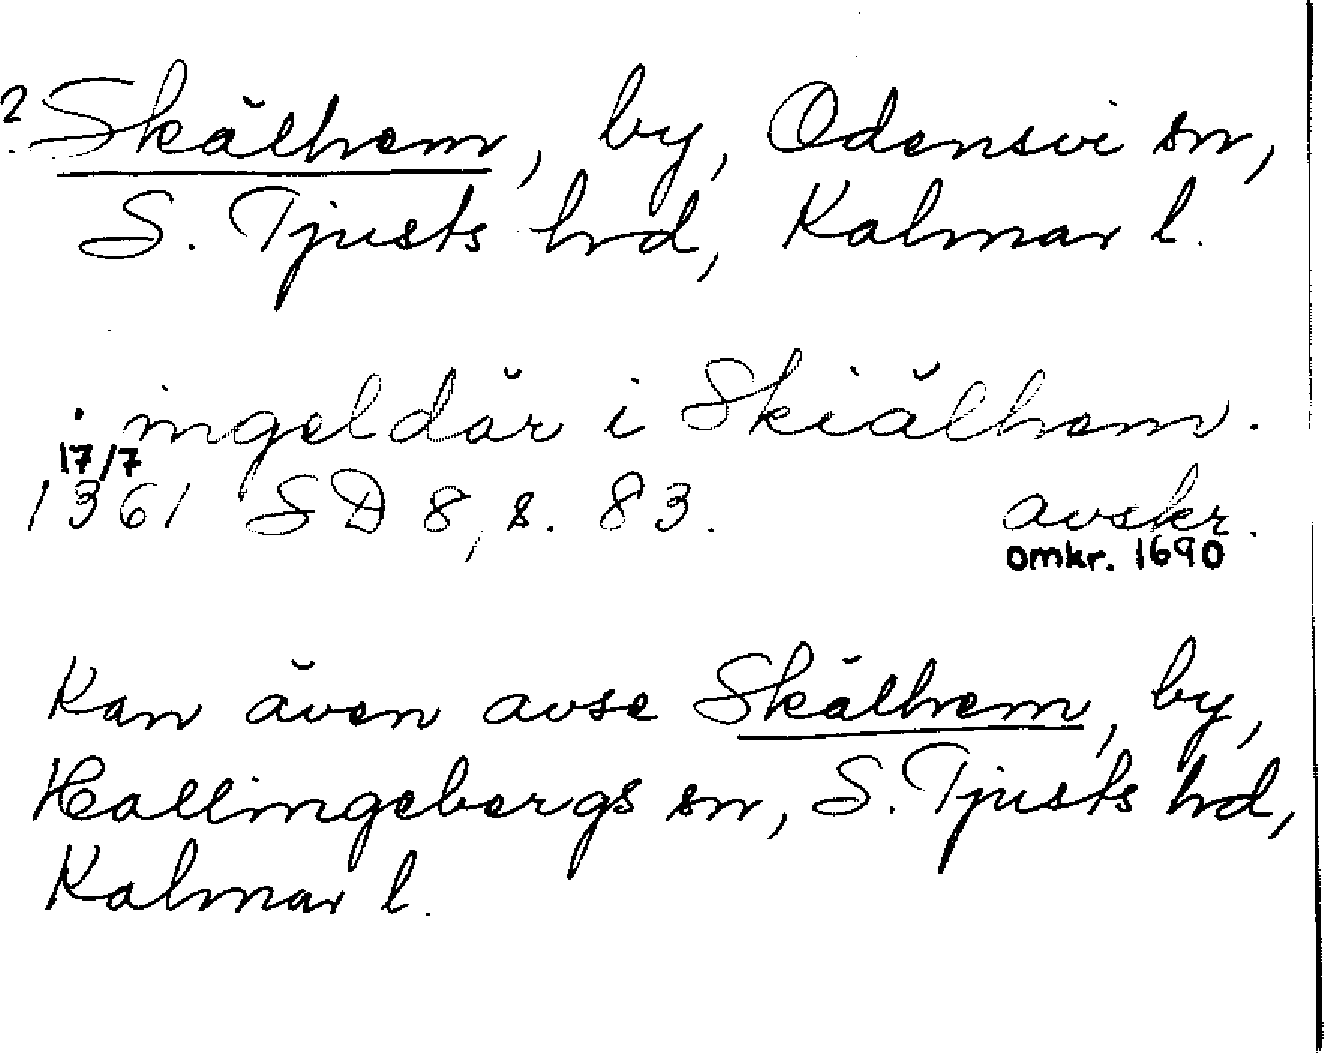 ? Skälhem, by, Odensvi sn,
S. Tjusts hd, Kalmar l.
. ingeldär i Skiälhem.
17/7
1361 SD 8, s. 83. avskr.
omkr. 1690
Kan även avse Skälhem, by,
Hallingebergs sn, S. Tjusts hd,
Kalmar l.